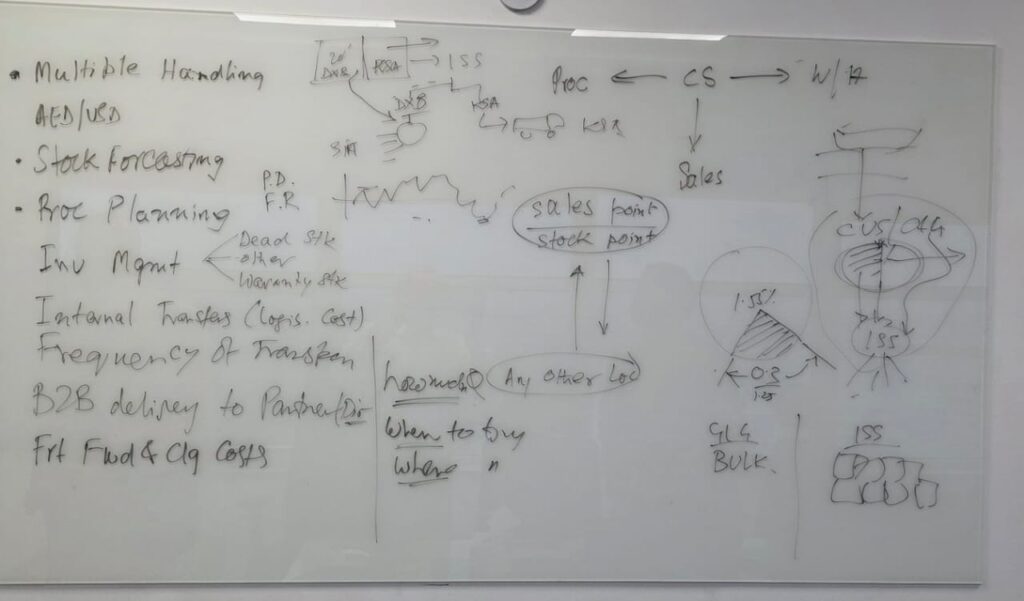 • Multible Handling
AED/USD
• Stock Forcasting
• Proc Planning
P.D.
F.R
Inv Mgmt
Dead Stk
other
Waranty Stk
Internal Transfers (Logis. Cost)
Frequency of
B2B delivery to Partner/Dir
Frt Fwd & Clg Costs
20'
DXB
KSA
ISS
DXB
KSA
KSA
Proc ← CS → W/H
Sales
sales point
stock point
Any other Loc
When to buy
Where "
1.55%
0.3
1.25
ISS
BULK.
ISS